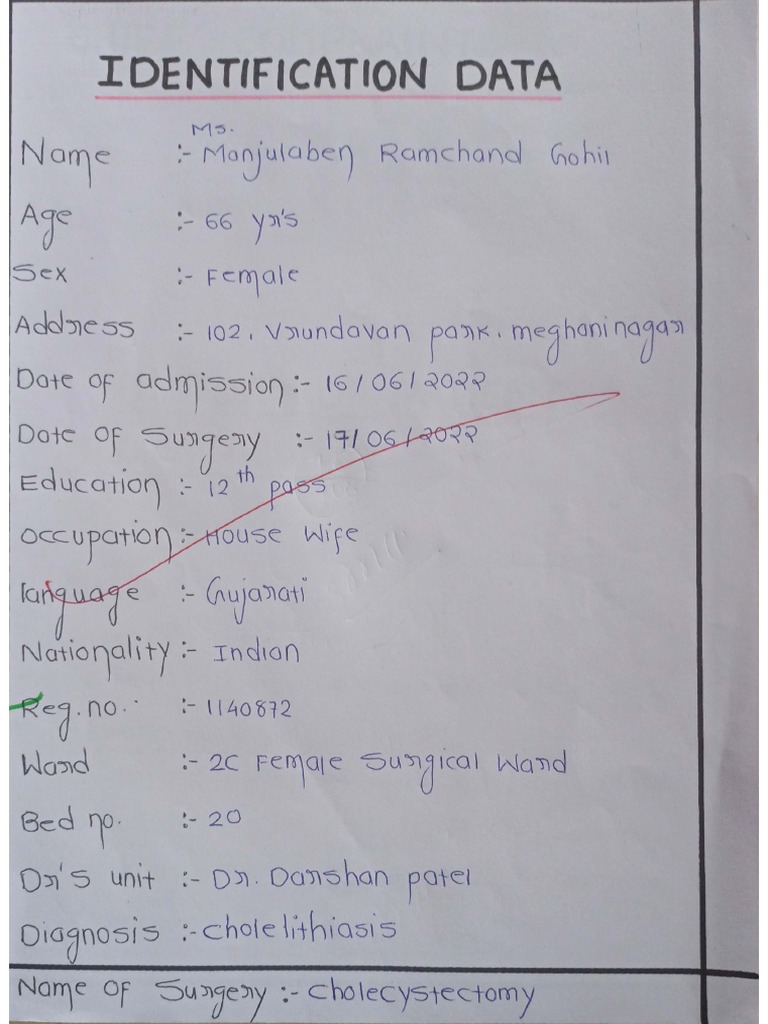 IDENTIFICATION DATA
Ms.
Name :- Manjulaben Ramchand Gohil
Age :- 66 yr's
Sex :- Female
Address :- 102, Vrundavan park. meghaninagar
Date of admission :- 16/06/2022
Date of Surgery :- 17/06/2022
Education :- 12th pass
Occupation :- House Wife
language :- Gujarati
Nationality :- Indian
Reg. no. :- 1140872
Ward :- 2C Female Surgical Ward
Bed no. :- 20
Dr's unit :- Dr. Darshan patel
Diagnosis :- cholelithiasis
Name of Surgery :- cholecystectomy